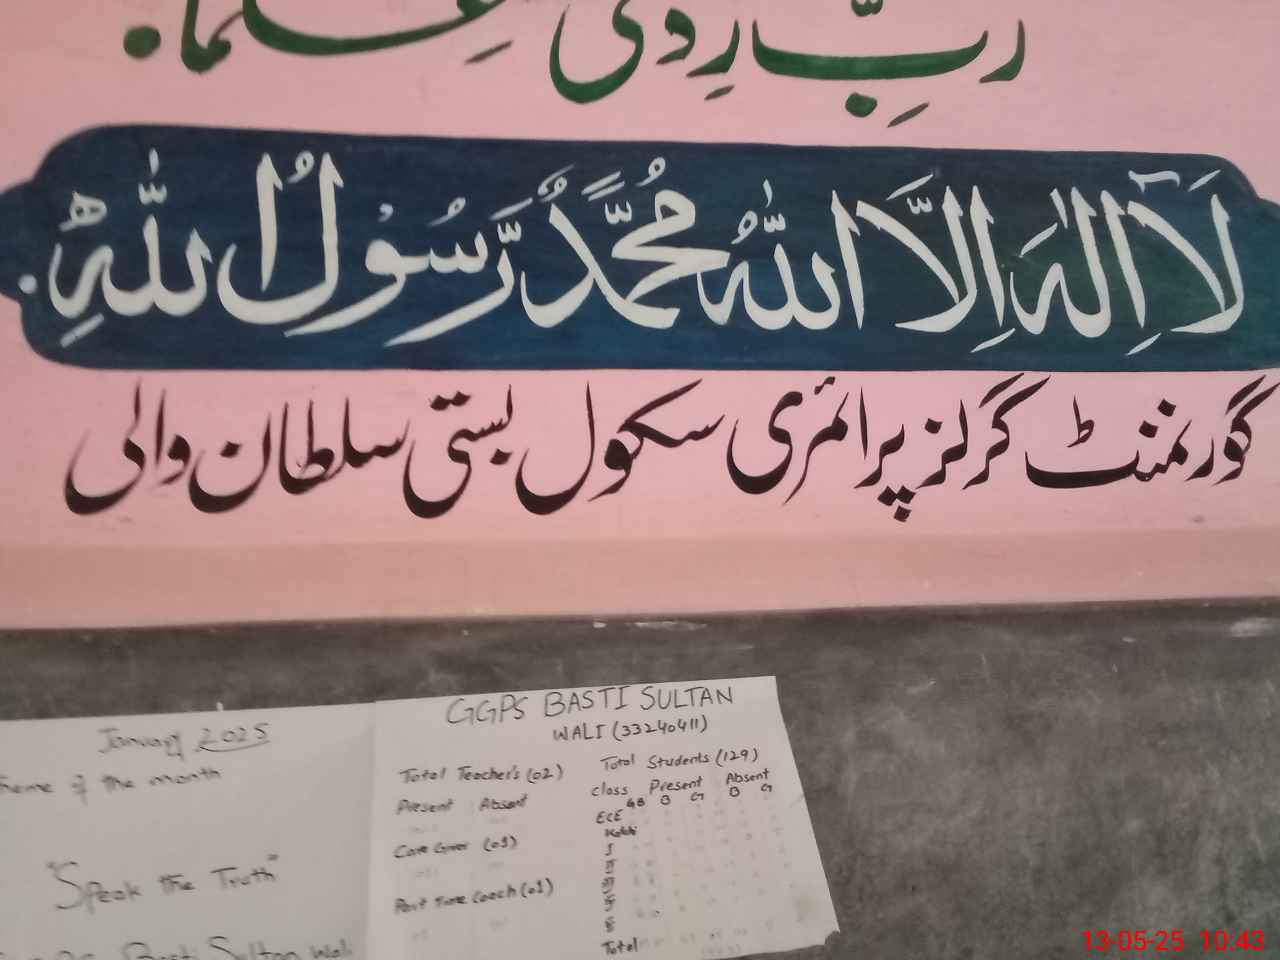 رَبِّ زِدْنِي عِلْمًا
لَآ اِلٰهَ اِلَّا اللّٰهُ مُحَمَّدٌ رَّسُوْلُ اللّٰهِ
گورنمنٹ گرلز پرائمری سکول بستی سلطان والی
January 2025
heme of the month
"Speak the Truth"
Basti Sultan Wali
GGPS BASTI SULTAN
WALI (33240411)
Total Teacher's (02)
Present Absent
Care Giver (01)
Part Time Coach (01)
Total Students (129)
Class Present Absent
B G B G
ECE
Katchi
I
II
III
Total
13-05-25 10:43